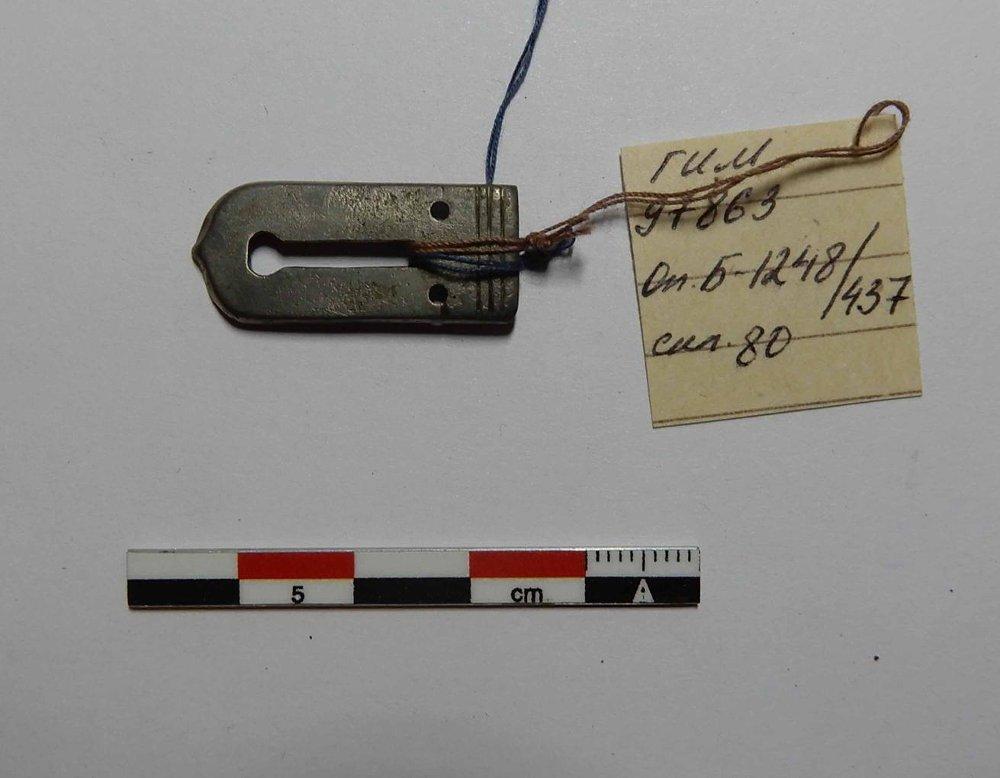 ГИМ
97863
Оп. Б-1248/437
скл. 80
5 cm A